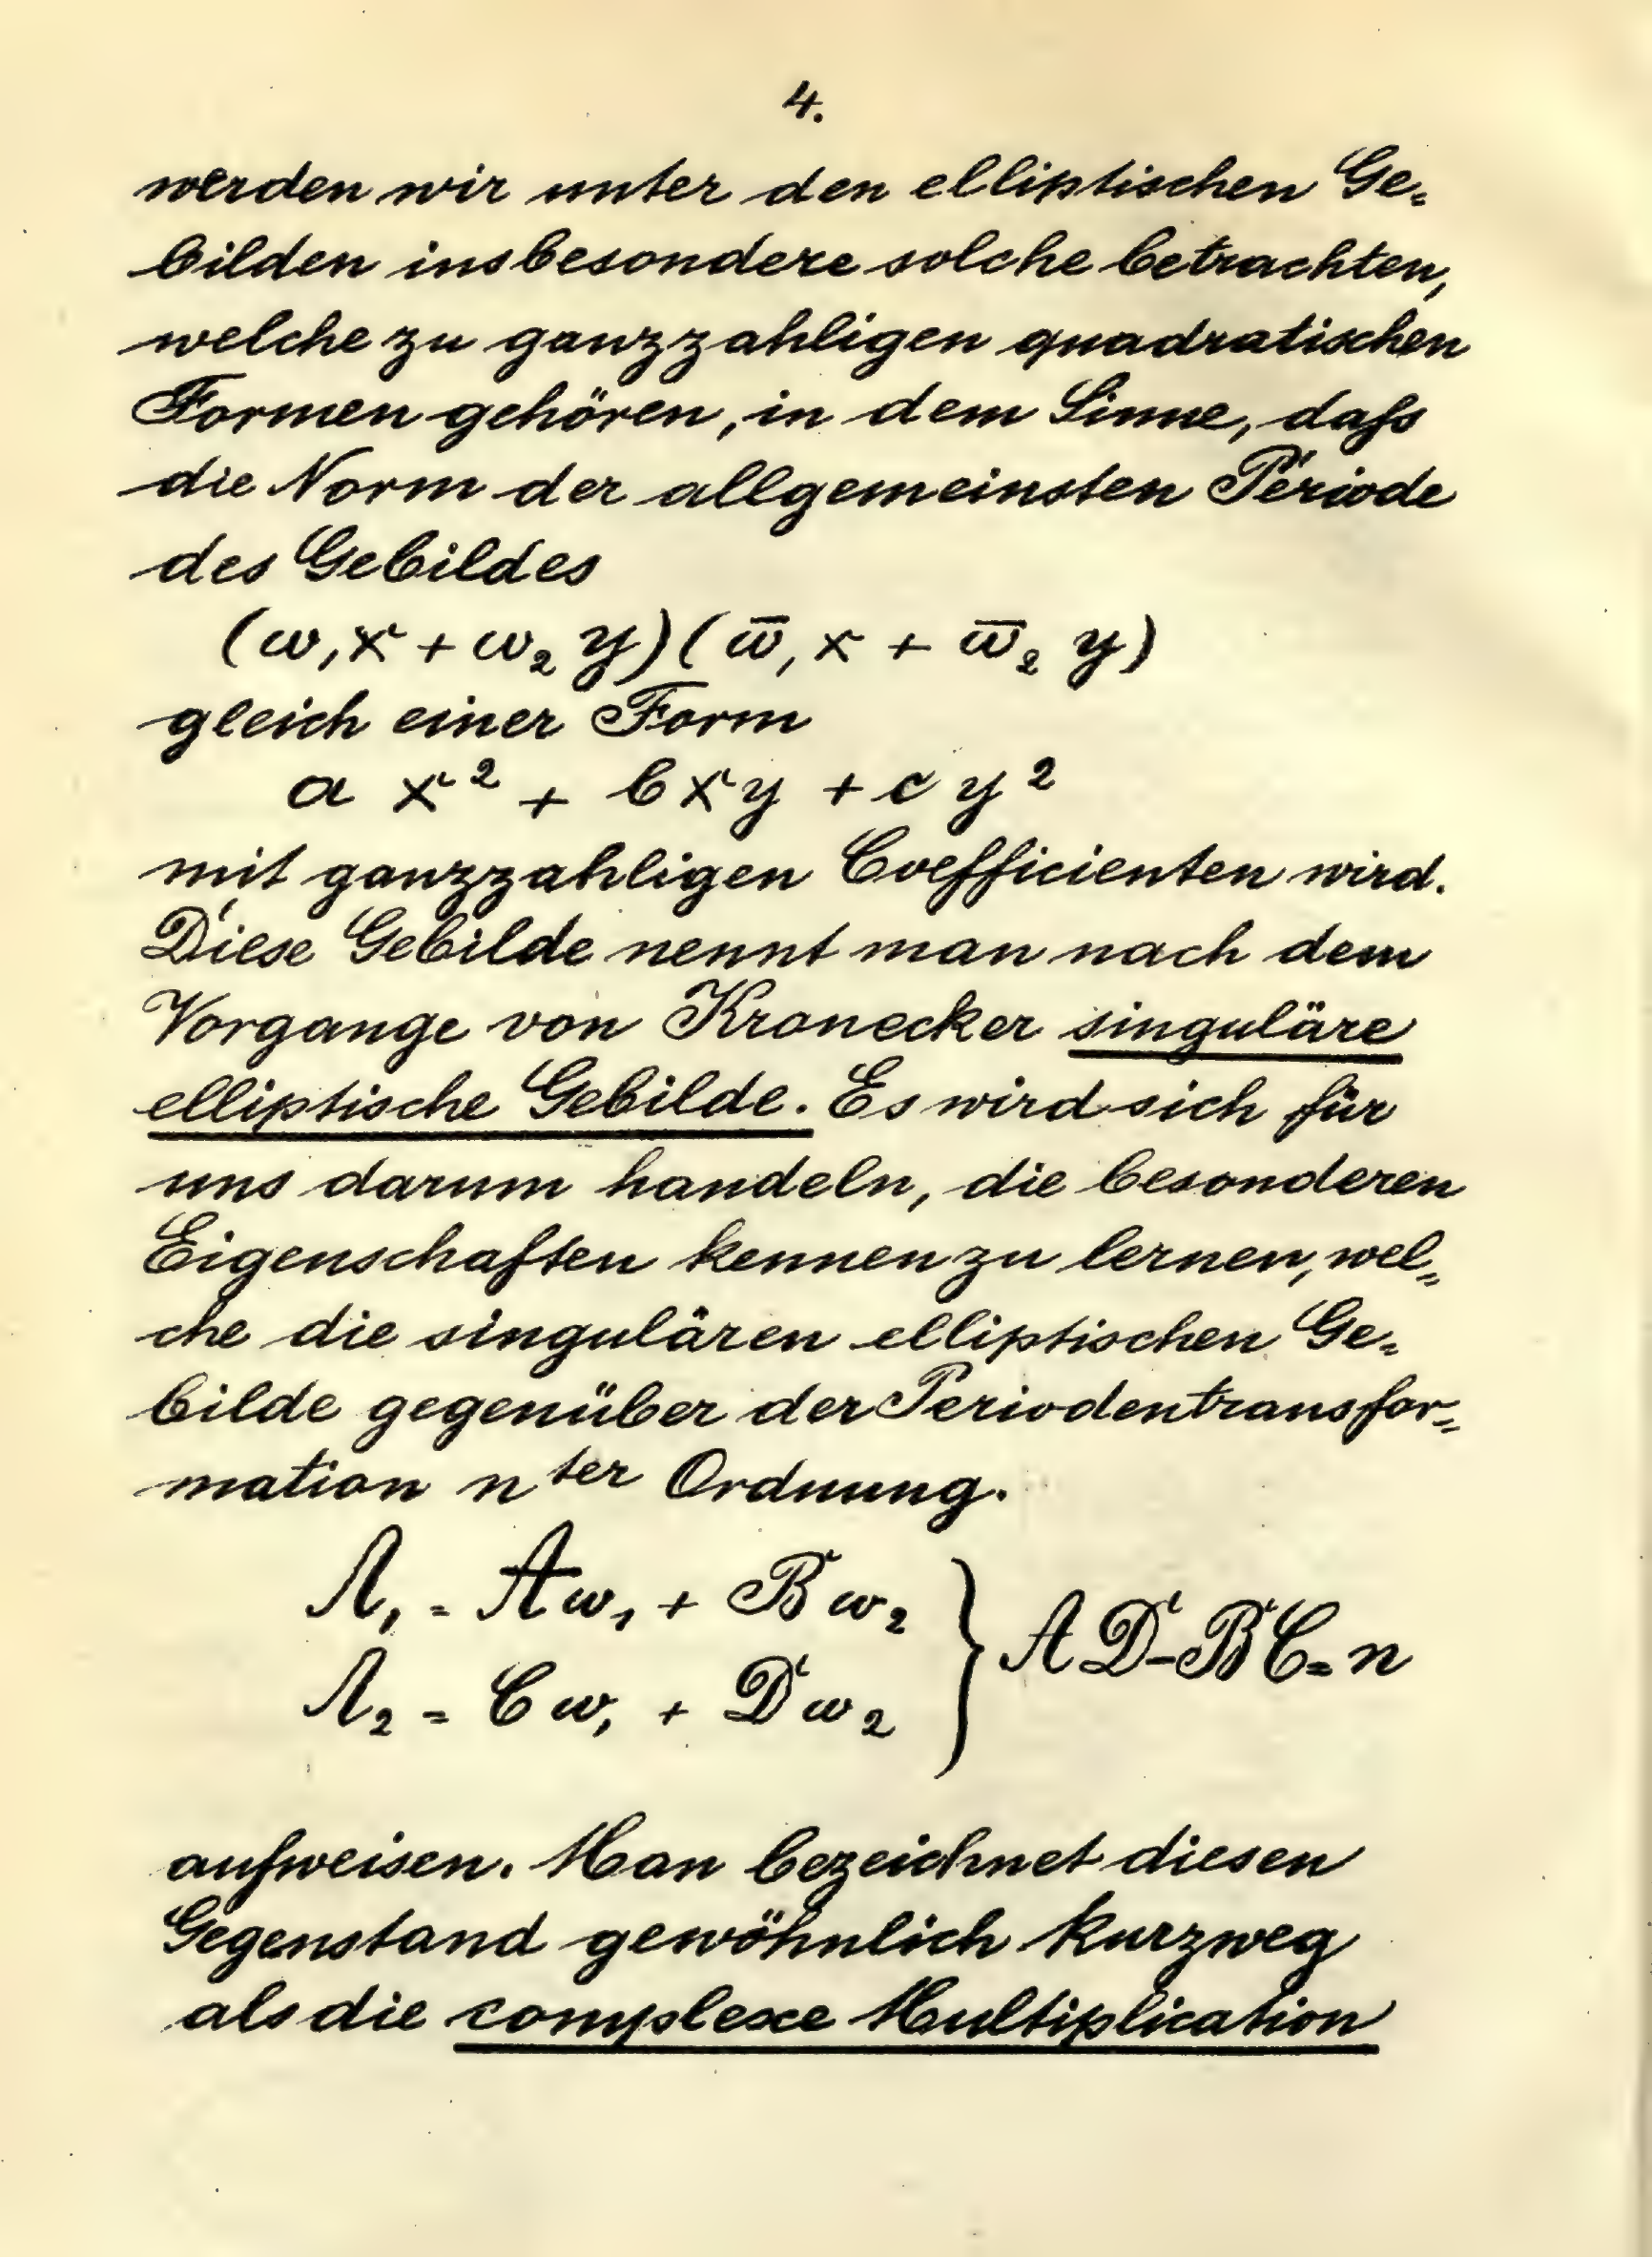 4.
werden wir unter den elliptischen Ge=
bilden insbesondere solche betrachten,
welche zu ganzzahligen quadratischen
Formen gehören, in dem Sinne, daſs
die Norm der allgemeinsten Periode
des Gebildes
(ω₁x + ω₂y)(ω̄₁x + ω̄₂y)
gleich einer Form
a x² + bxy + cy²
mit ganzzahligen Coefficienten wird.
Diese Gebilde nennt man nach dem
Vorgange von Kronecker singuläre
elliptische Gebilde. Es wird sich für
uns darum handeln, die besonderen
Eigenschaften kennen zu lernen, wel=
che die singulären elliptischen Ge=
bilde gegenüber der Periodentransfor=
mation nᵗᵉʳ Ordnung.
Λ₁ = Aω₁ + Bω₂
Λ₂ = Cω₁ + Dω₂ } AD-BC=n
aufweisen. Man bezeichnet diesen
Gegenstand gewöhnlich kurzweg
als die complexe Multiplication